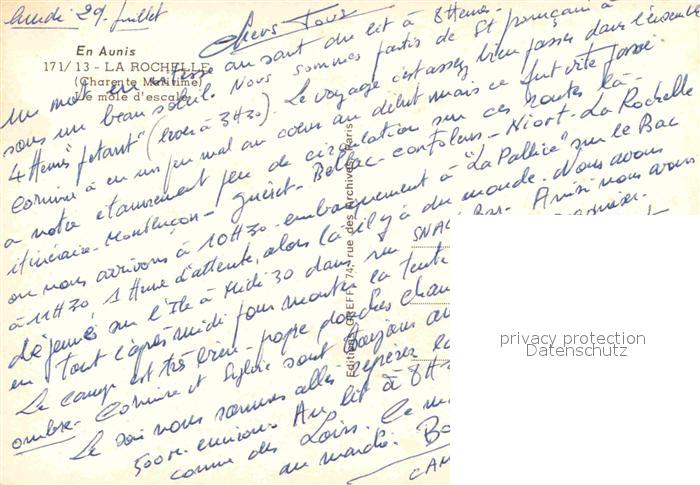 lundi 29. Juillet
Chers Tous
En Aunis
171/13 - LA ROCHELLE
(Charente Maritime)
Le môle d'escale
Un mot en vitesse au saut du lit à 8 Heures -
sous un beau soleil. Nous sommes partis de St pourçain à
4 Heures "pétant" (levé à 3H30). Le voyage s'est assez bien passé dans l'ensemble
Corinne à eu un peu mal au cœur au début mais ce fut vite passé.
a notre étonnement peu de circulation sur ces routes là -
itinéraire - Montluçon - Guéret - Bellac - Confolens - Niort - La Rochelle
ou nous arrivons à 10H30 - embarquement à "La Pallice" sur le Bac
à 11H30, 1 Heure d'attente, alors là il y à du monde. Nous avons
déjeuné sur l'Ile à Midi 30 dans un SNAC
en tout l'après midi pour monter la tente
Le camp est très bien - propre douches chau
ombre - Corinne et Sylvie sont toujours au
Le soir nous sommes allés repérer la
500 m. environ Au lit à 8H
comme des Loirs. Ce m
au marché. Bo
CAM
Editions GREFF, 74, rue des Archives, Paris
privacy protection
Datenschutz